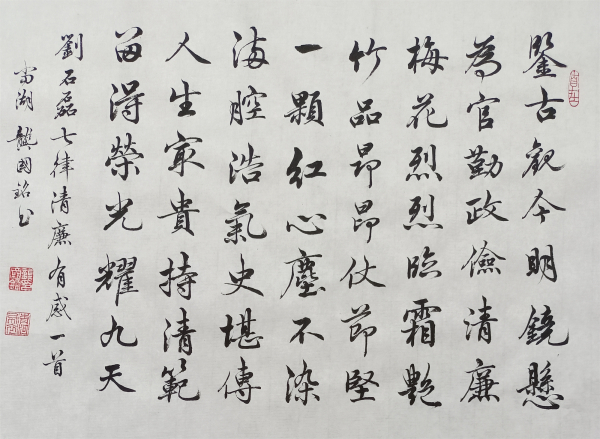 鑒古觀今明鏡懸
為官勤政儉清廉
梅花烈烈臨霜艷
竹品昂昂仗節堅
一顆紅心塵不染
滿腔浩氣史堪傳
人生最貴持清範
留得榮光耀九天
劉石磊七律清廉有感一首
雷湖龔國銘書